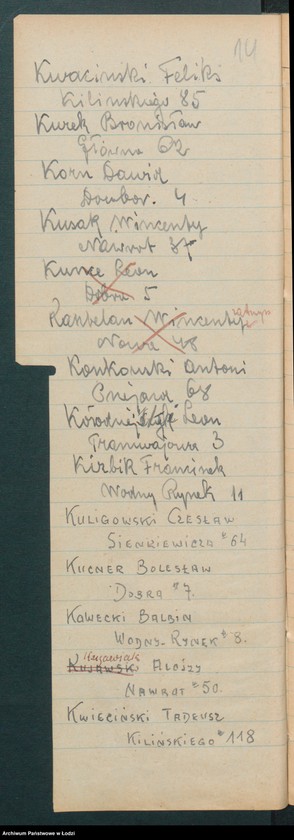 14
Kwaciński Feliks
Kilinskiego 85
Kurek Bronisław
Główna 62
Korn Dawid
Dowbor. 4
Kusak Wincenty
Nawrot 37
Kunce Leon
Dobra 5
Kasztelan Wincenty
Nowa 48
Konkowski Antoni
68
Leon
Tramwajowa 3
Kirbik Francisek
Wodny Rynek 11
KULIGOWSKI CZESŁAW
SIENKIEWICZA #64
KUCNER BOLESŁAW
DOBRA #7.
KAWECKI BALBIN
WODNY-RYNEK #8.
Kujawiak
KUJAWSKI ALOJZY
NAWROT #50.
KWIECIŃSKI TADEUSZ
KILIŃSKIEGO #118
Archiwum Państwowe w Łodzi